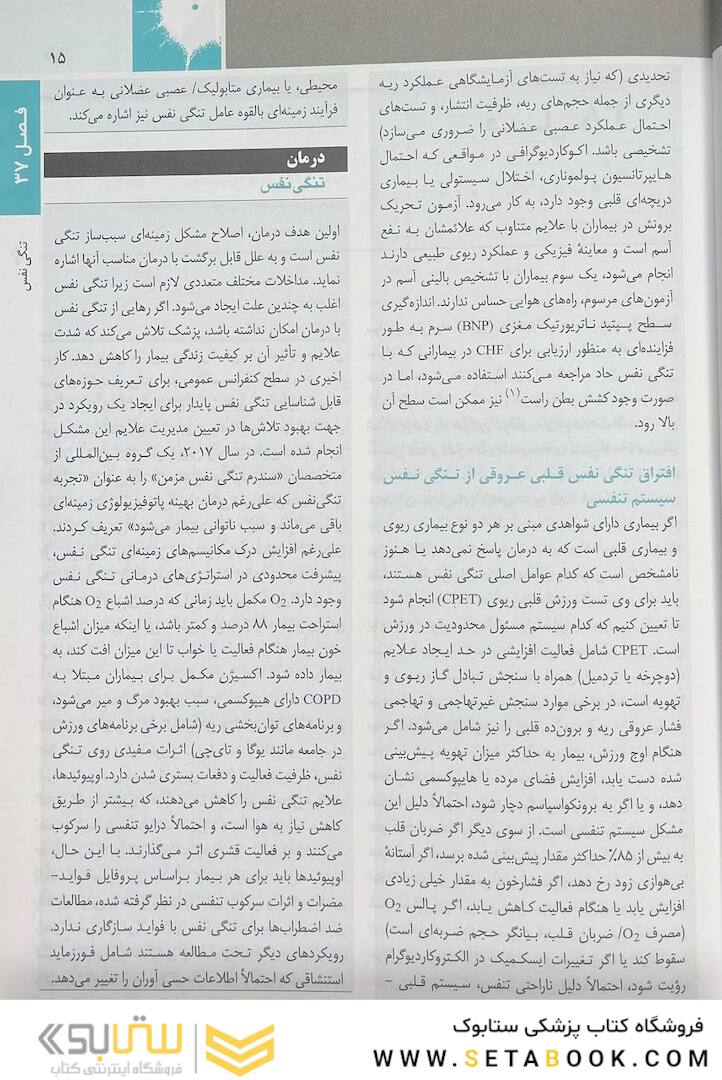 ۱۵
فصل ۳۷
تنگی نفس
تحدیدی (که نیاز به تست‌های آزمایشگاهی عملکرد ریه
دیگری از جمله حجم‌های ریه، ظرفیت انتشار، و تست‌های
احتمال عملکرد عصبی عضلانی را ضروری می‌سازد)
تشخیصی باشد. اکوکاردیوگرافی در مواقعی که احتمال
هایپرتانسیون پولموناری، اختلال سیستولی یا بیماری
دریچه‌ای قلبی وجود دارد، به کار می‌رود. آزمون تحریک
برونش در بیماران با علایم متناوب که علائمشان به نفع
آسم است و معاینهٔ فیزیکی و عملکرد ریوی طبیعی دارند
انجام می‌شود، یک سوم بیماران با تشخیص بالینی آسم در
آزمون‌های مرسوم، راه‌های هوایی حساس ندارند. اندازه‌گیری
سطح پپتید ناتریورتیک مغزی (BNP) سرم به طور
فزاینده‌ای به منظور ارزیابی برای CHF در بیمارانی که با
تنگی نفس حاد مراجعه می‌کنند استفاده می‌شود، اما در
صورت وجود کشش بطن راست(۱) نیز ممکن است سطح آن
بالا رود.
افتراق تنگی نفس قلبی عروقی از تنگی نفس
سیستم تنفسی
اگر بیماری دارای شواهدی مبنی بر هر دو نوع بیماری ریوی
و بیماری قلبی است که به درمان پاسخ نمی‌دهد یا هنوز
نامشخص است که کدام عوامل اصلی تنگی نفس هستند،
باید برای وی تست ورزش قلبی ریوی (CPET) انجام شود
تا تعیین کنیم که کدام سیستم مسئول محدودیت در ورزش
است. CPET شامل فعالیت افزایشی در حد ایجاد علایم
(دوچرخه یا تردمیل) همراه با سنجش تبادل گاز ریوی و
تهویه است، در برخی موارد سنجش غیرتهاجمی و تهاجمی
فشار عروقی ریه و برون‌ده قلبی را نیز شامل می‌شود. اگر
هنگام اوج ورزش، بیمار به حداکثر میزان تهویه پیش‌بینی
شده دست یابد، افزایش فضای مرده یا هایپوکسمی نشان
دهد، و یا اگر به برونکواسپاسم دچار شود، احتمالاً دلیل این
مشکل سیستم تنفسی است. از سوی دیگر اگر ضربان قلب
به بیش از ۸۵٪ حداکثر مقدار پیش‌بینی شده برسد، اگر آستانهٔ
بی‌هوازی زود رخ دهد، اگر فشارخون به مقدار خیلی زیادی
افزایش یابد یا هنگام فعالیت کاهش یابد، اگر پالس O2
(مصرف O2/ ضربان قلب، بیانگر حجم ضربه‌ای است)
سقوط کند یا اگر تغییرات ایسکمیک در الکتروکاردیوگرام
رؤیت شود، احتمالاً دلیل ناراحتی تنفس، سیستم قلبی -
محیطی، یا بیماری متابولیک/ عصبی عضلانی به عنوان
فرآیند زمینه‌ای بالقوه عامل تنگی نفس نیز اشاره می‌کند.
درمان
تنگی نفس
اولین هدف درمان، اصلاح مشکل زمینه‌ای سبب‌ساز تنگی
نفس است و به علل قابل برگشت با درمان مناسب آنها اشاره
نماید. مداخلات مختلف متعددی لازم است زیرا تنگی نفس
اغلب به چندین علت ایجاد می‌شود. اگر رهایی از تنگی نفس
با درمان امکان نداشته باشد، پزشک تلاش می‌کند که شدت
علایم و تأثیر آن بر کیفیت زندگی بیمار را کاهش دهد. کار
اخیری در سطح کنفرانس عمومی، برای تعریف حوزه‌های
قابل شناسایی تنگی نفس پایدار برای ایجاد یک رویکرد در
جهت بهبود تلاش‌ها در تعیین مدیریت علایم این مشکل
انجام شده است. در سال ۲۰۱۷، یک گروه بین‌المللی از
متخصصان «سندرم تنگی نفس مزمن» را به عنوان «تجربه
تنگی‌نفس که علی‌رغم درمان بهینه پاتوفیزیولوژی زمینه‌ای
باقی می‌ماند و سبب ناتوانی بیمار می‌شود» تعریف کردند.
علی‌رغم افزایش درک مکانیسم‌های زمینه‌ای تنگی نفس،
پیشرفت محدودی در استراتژی‌های درمانی تنگی نفس
وجود دارد. O2 مکمل باید زمانی که درصد اشباع O2 هنگام
استراحت بیمار ۸۸ درصد و کمتر باشد، یا اینکه میزان اشباع
خون بیمار هنگام فعالیت یا خواب تا این میزان افت کند، به
بیمار داده شود. اکسیژن مکمل برای بیماران مبتلا به
COPD دارای هیپوکسمی، سبب بهبود مرگ و میر می‌شود،
و برنامه‌های توان‌بخشی ریه (شامل برخی برنامه‌های ورزش
در جامعه مانند یوگا و تای‌چی) اثرات مفیدی روی تنگی
نفس، ظرفیت فعالیت و دفعات بستری شدن دارد. اوپیوئیدها،
علایم تنگی نفس را کاهش می‌دهند، که بیشتر از طریق
کاهش نیاز به هوا است، و احتمالاً درایو تنفسی را سرکوب
می‌کنند و بر فعالیت قشری اثر می‌گذارند. با این حال،
اوپیوئیدها باید برای هر بیمار براساس پروفایل فواید-
مضرات و اثرات سرکوب تنفسی در نظر گرفته شده، مطالعات
ضد اضطراب‌ها برای تنگی نفس با فواید سازگاری ندارد.
رویکردهای دیگر تحت مطالعه هستند شامل فورزماید
استنشاقی که احتمالاً اطلاعات حسی آوران را تغییر می‌دهد.
فروشگاه کتاب پزشکی ستابوک
WWW.SETABOOK.COM
ستابوک
فروشگاه اینترنتی کتاب